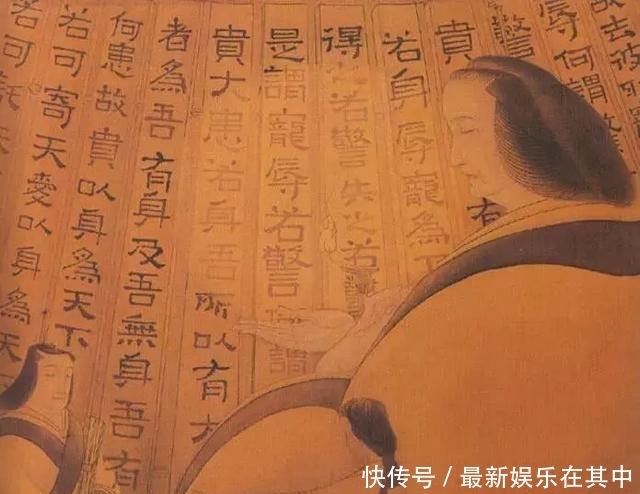 故去彼
辱何謂
驚
貴
有
若身辱寵為下
得之若驚失之若驚
是謂寵辱若驚何謂
貴大患若身吾所以有大
者為吾有身及吾無身吾有
何患故貴以身為天下
若可寄天愛以身為天
若可託天
快传号 / 最新娱乐在其中